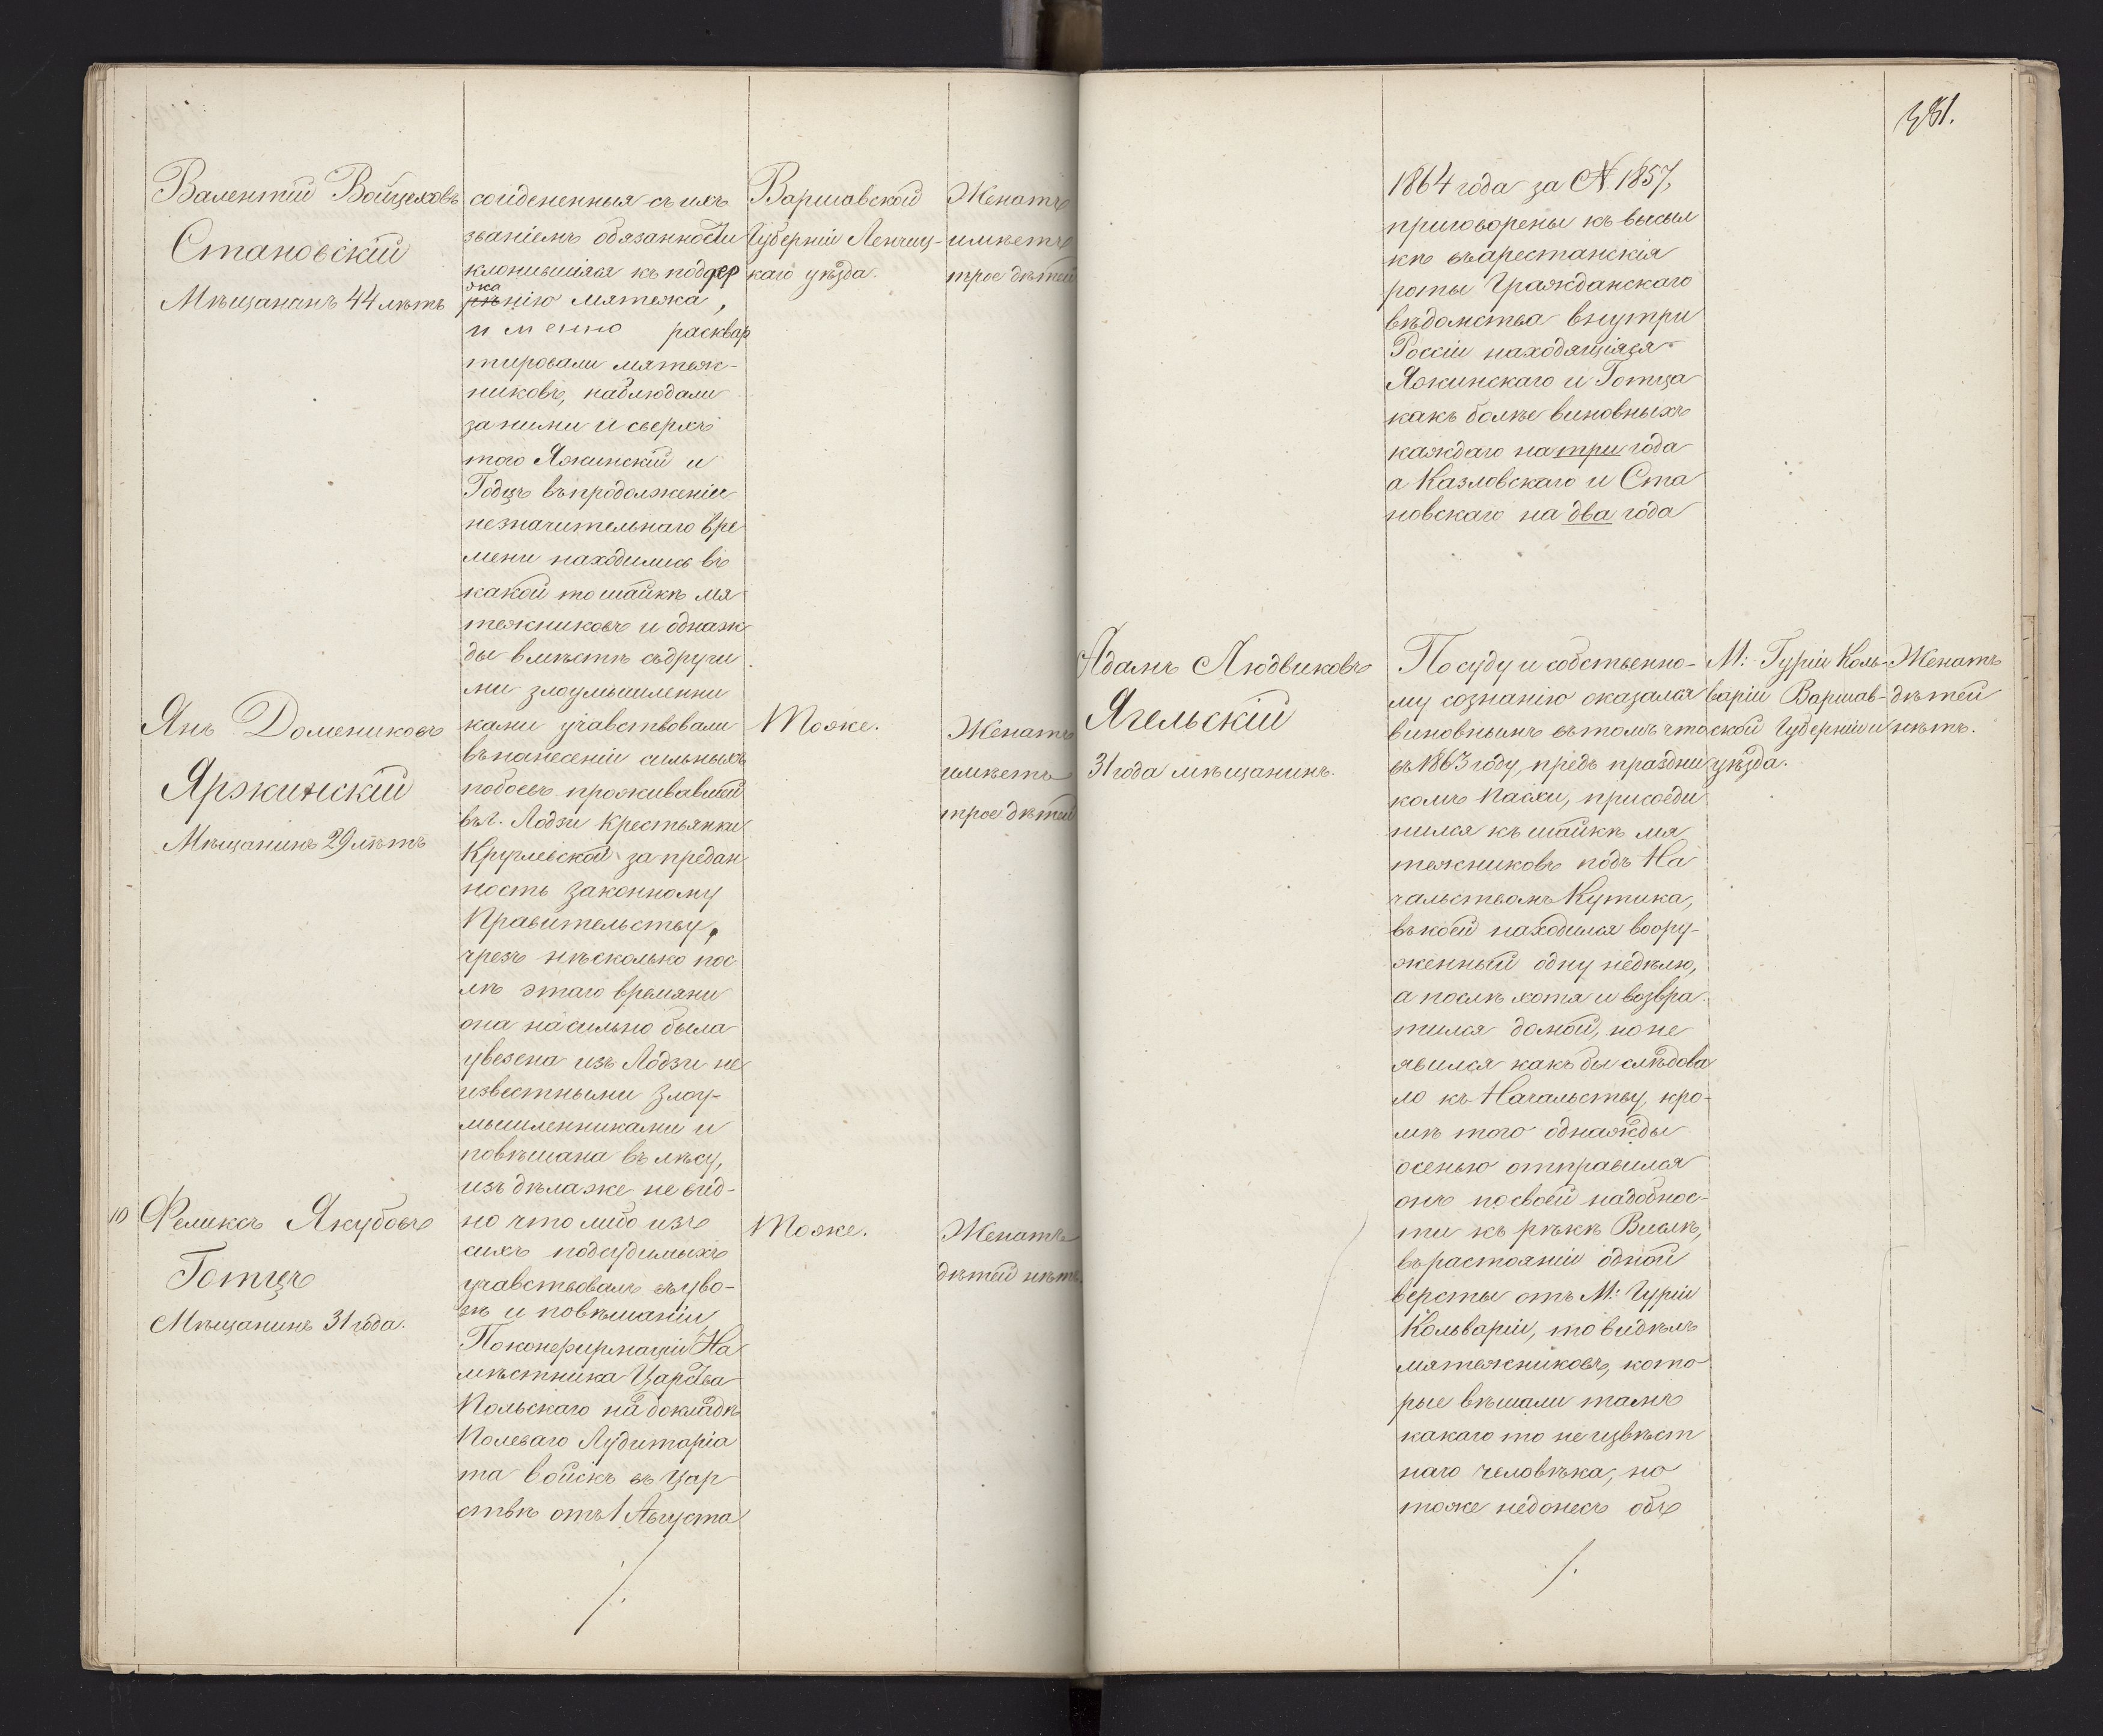 Валентій Войцеховъ
Становскій
Мѣщананъ 44 лѣтъ
Янъ Домениковъ
Яржинскій
Мѣщанинъ 29 лѣтъ
10 Феликсъ Якубовъ
Готцъ
Мѣщанинъ 31 года.
соиденныя съ ихъ
званіемъ обязанности
клонившіяся къ поддер
жа
нію мятежа,
именно расквар
тировали мятеж-
никовъ, наблюдали
за ними и сверхъ
того Яжинскій и
Годцъ въ продолженіи
незначительнаго вре
мени находились въ
какой то шайкѣ мя
тежниковъ и однаж
ды вмѣстѣ съ други
ми злоумышленни
ками учавствовали
въ нанесеніи сильныхъ
побоевъ проживавшей
въ г. Лодзи крестьянки
Кругльвской за предан
ность законному
Правительству,
чрезъ нѣсколько пос
лѣ этаго времяни
она насильно была
увезена изъ Лодзи не
известными злоу-
мышленниками и
повѣшана въ лѣсу,
изъ дѣла же не вид-
но что либо изъ
сихъ подсудимыхъ
учавствовалъ въ уво-
зѣ и повѣшаніи,
По конфирмаціи На
мѣстника Царства
Польскаго на докладѣ
Полеваго Аудиторіа
та войскъ въ Цар
ствѣ отъ 1 Августа
Варшавской
Губерніи Ленчиц-
каго уѣзда.
Тоже.
Тоже.
Женатъ
имѣетъ
трое дѣтей
Женатъ
имѣетъ
трое дѣтей
Женатъ
дѣтей нѣтъ.
381.
Адамъ Людвиковъ
Ягельскій
31 года мѣщанинъ.
1864 года за N 1857,
приговорены къ высыл
кѣ въ арестанскія
роты Гражданскаго
вѣдомства внутри
Россіи находящіяся
Яжинскаго и Готца
какъ болѣе виновныхъ
каждаго на три года
а Казловскаго и Ста
новскаго на два года
По суду и собственно-
му сознанію оказался
виновнымъ въ томъ что
въ 1863 году, предъ праздни
комъ Пасхи, присоеди
нился къ шайкѣ мя
тежниковъ подъ На
чальствомъ Кутика,
въ коей находился воору-
женный одну недѣлю,
а послѣ хотя и возвра
тился домой, но не
явился какъ бы слѣдова
ло къ Начальству, кро-
мѣ того однажды
осенью отправился
онъ по своей надобнос-
ти къ рѣкѣ Вислѣ,
въ растояніи одной
версты отъ М: Гуріи
Кольваріи, то видѣлъ
мятежниковъ, кото
рые вѣшали тамъ
какаго то неизвѣст
наго человѣка, но
тоже недонесъ объ
М: Гуріи Коль-
варіи Варшав-
ской Губерніи и
уѣзда.
Женатъ
дѣтей
нѣтъ.